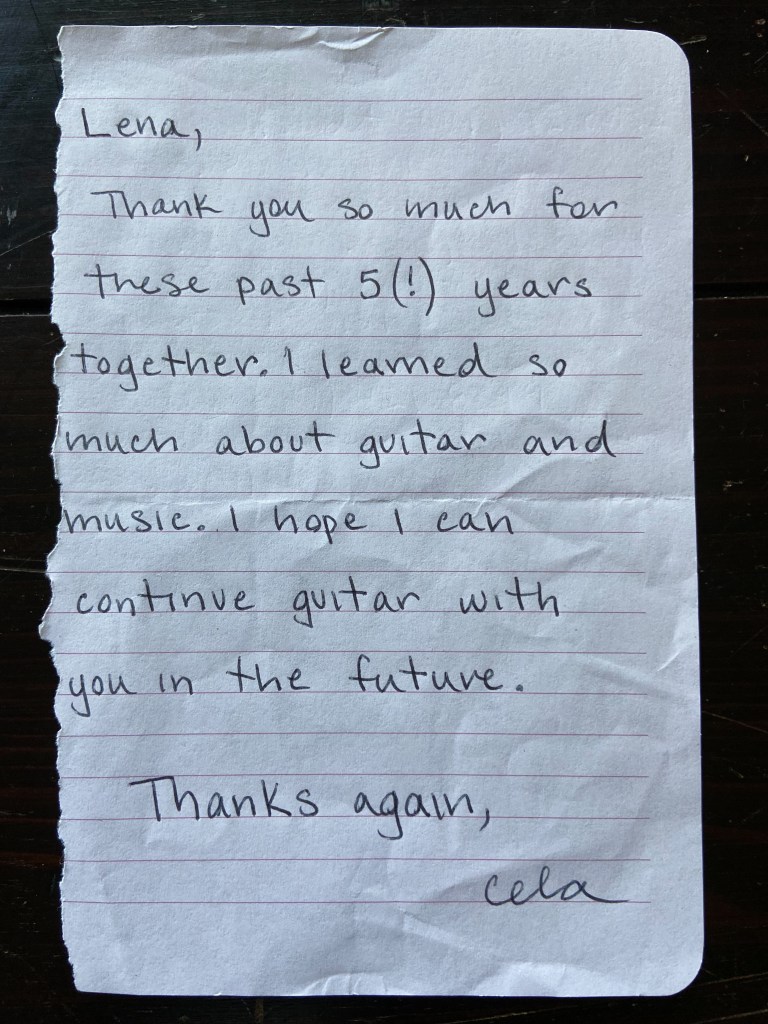 Lena,
Thank you so much for
these past 5(!) years
together. I learned so
much about guitar and
music. I hope I can
continue guitar with
you in the future.
Thanks again,
Cela